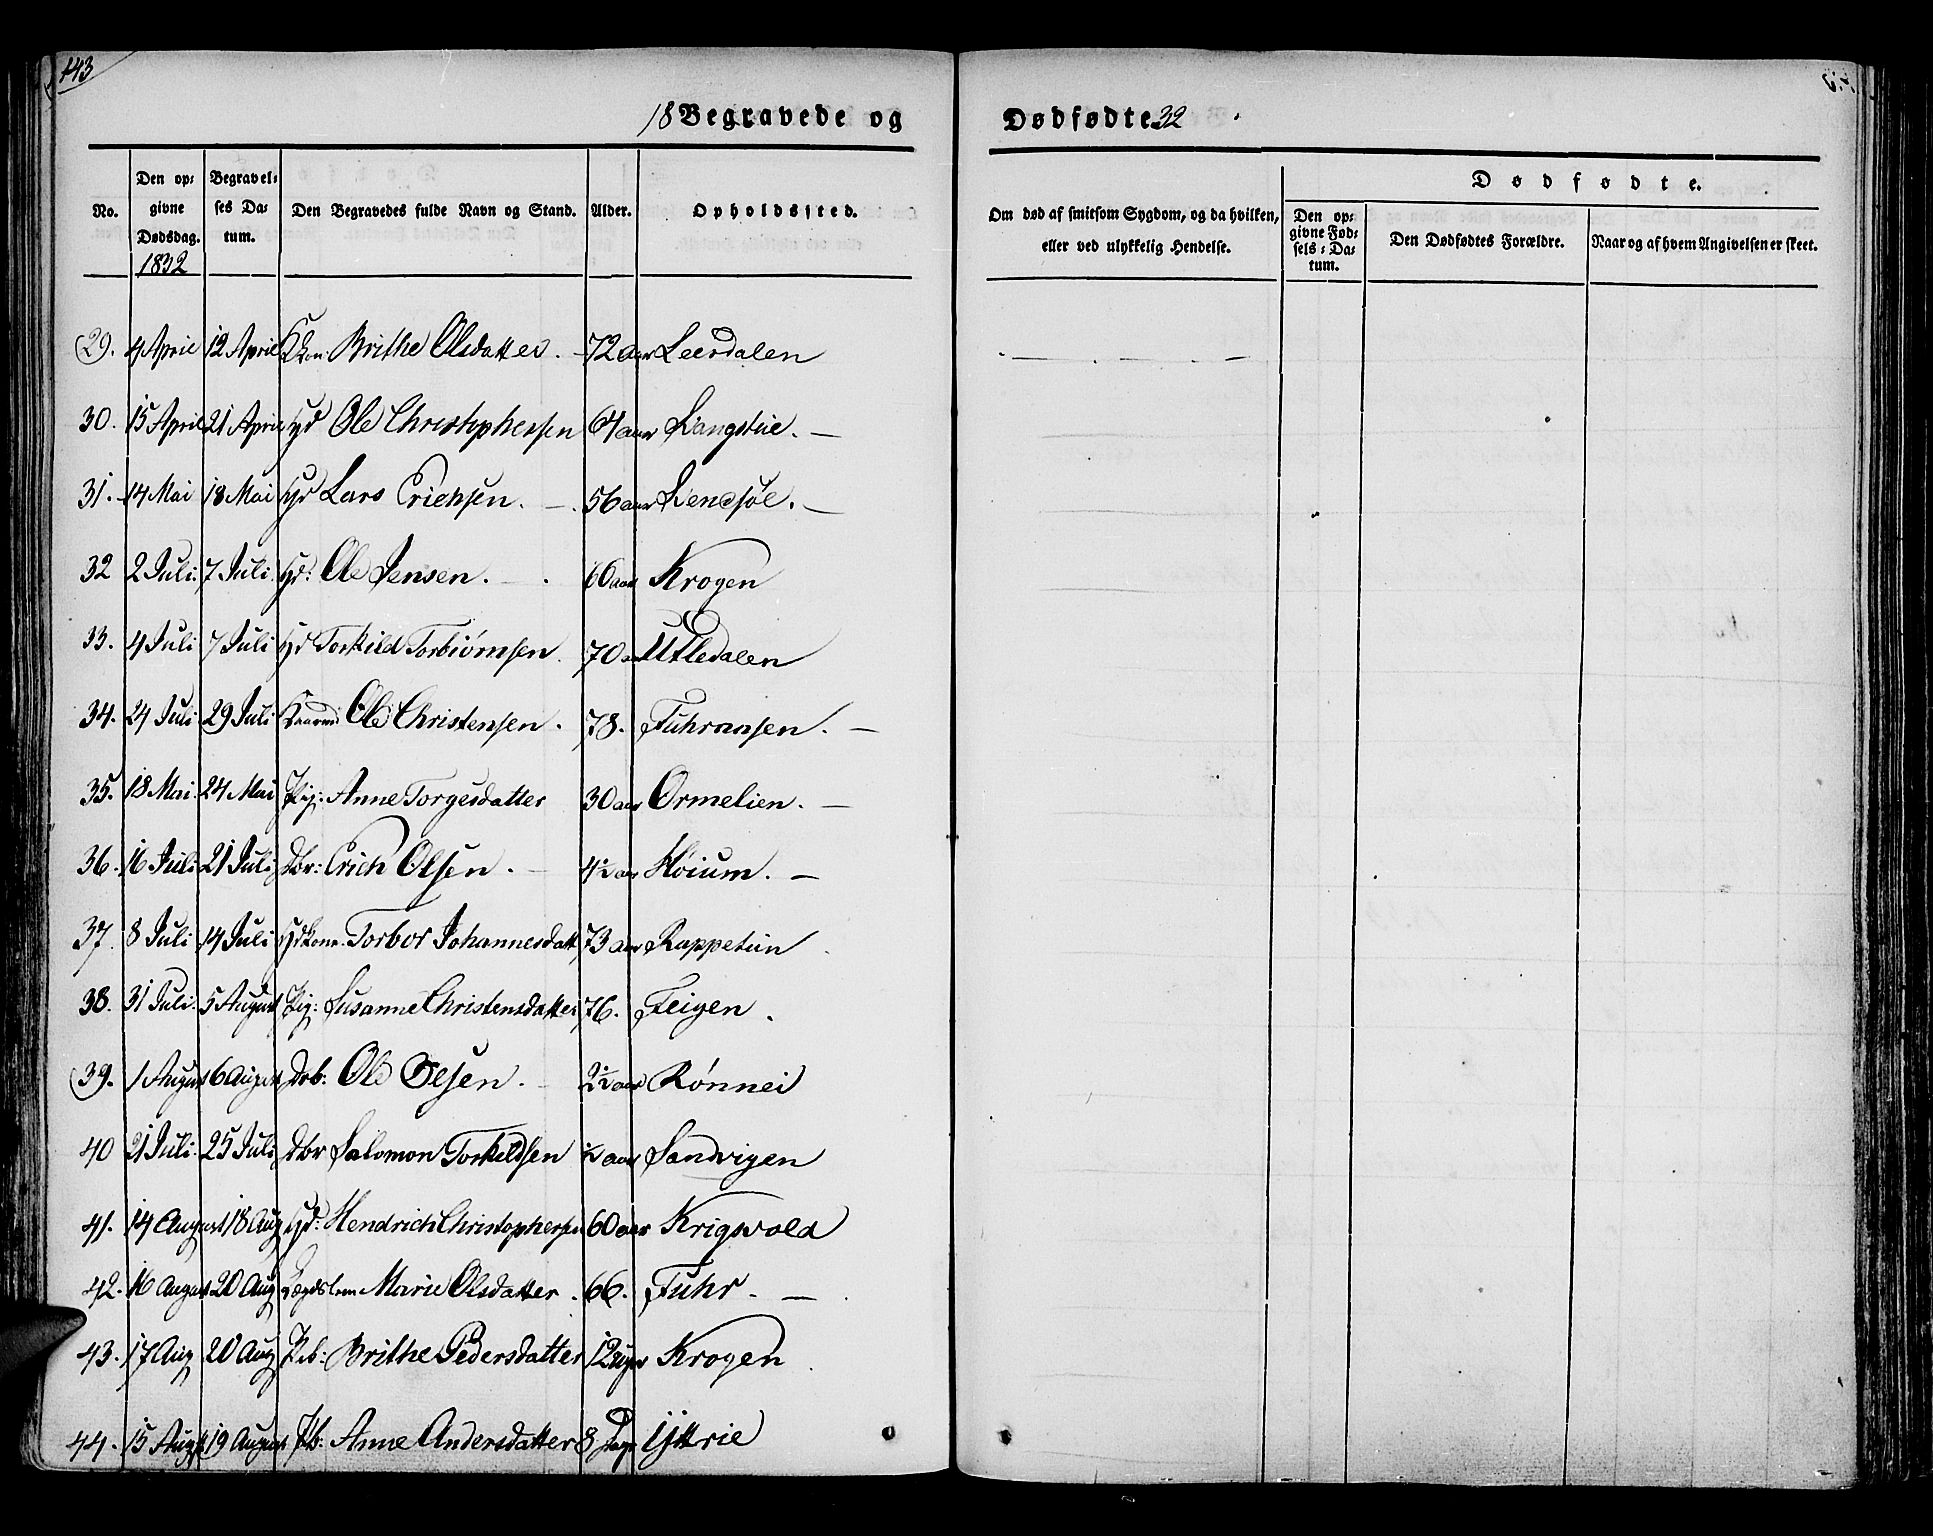 143
18 Begravede og Dødfødte. 32
No.
Den opgivne Dødsdag. 1832
Begravelses Datum.
Den Begravedes fulde Navn og Stand.
Alder.
Opholdssted.
Om død af smitsom Sygdom, og da hvilken, eller ved ulykkelig Hendelse.
Dødfødte.
Den opgivne Fødsels-Datum.
Den Dødfødtes Forældre.
Naar og af hvem Angivelsen er skeet.
29. 4 April 12 April Kkon: Brithe Olsdatter. 72 aar Leerdalen
30. 15 April 21 April Hd Ole Christophersen 64 aar Langstue. —
31. 14 Mai 18 Mai Hd Lars Erichsen. — 56 aar —
32 2 Juli 7 Juli Hd: Ole Jensen. — 66 aar Krogen
33. 4 Juli 7 Juli Hd Torkild Torbiørnsen 70 aar Utledalen
34. 24 Juli 29 Juli Ole Christensen. 78. Fuhrnæsen. —
35. 18 Mai 24 Mai Pig: Anne Torgersdatter 30 aar Ormelien. —
36. 16 Juli 21 Juli Dbr: Erich Olsen. — 4½ aar Høium. —
37. 8 Juli 14 Juli Hdkone Torbor Johannesdatt 73 aar Rappetun
38. 31 Juli 5 August Pig: Susanne Christensdatter 76. Feigen.
39. 1 August 6 August Drb: Ole Olsen. — 2½ aar Rønnei
40 21 Juli 25 Juli Dbr Salomon Torkildsen ½ aar Sandvigen
41. 14 August 18 Aug Hd: Hendrich Christophersen 60 aar Krigsvold
42. 16 August 20 Aug Lægdslem Marie Olsdatter. 66. Fuhr. —
43. 17 Aug 20 Aug Pb: Brithe Pedersdatter 12 uger Krogen
44. 15 Augst 19 August Pb: Anne Andersdatter 8 Dage Yttrie